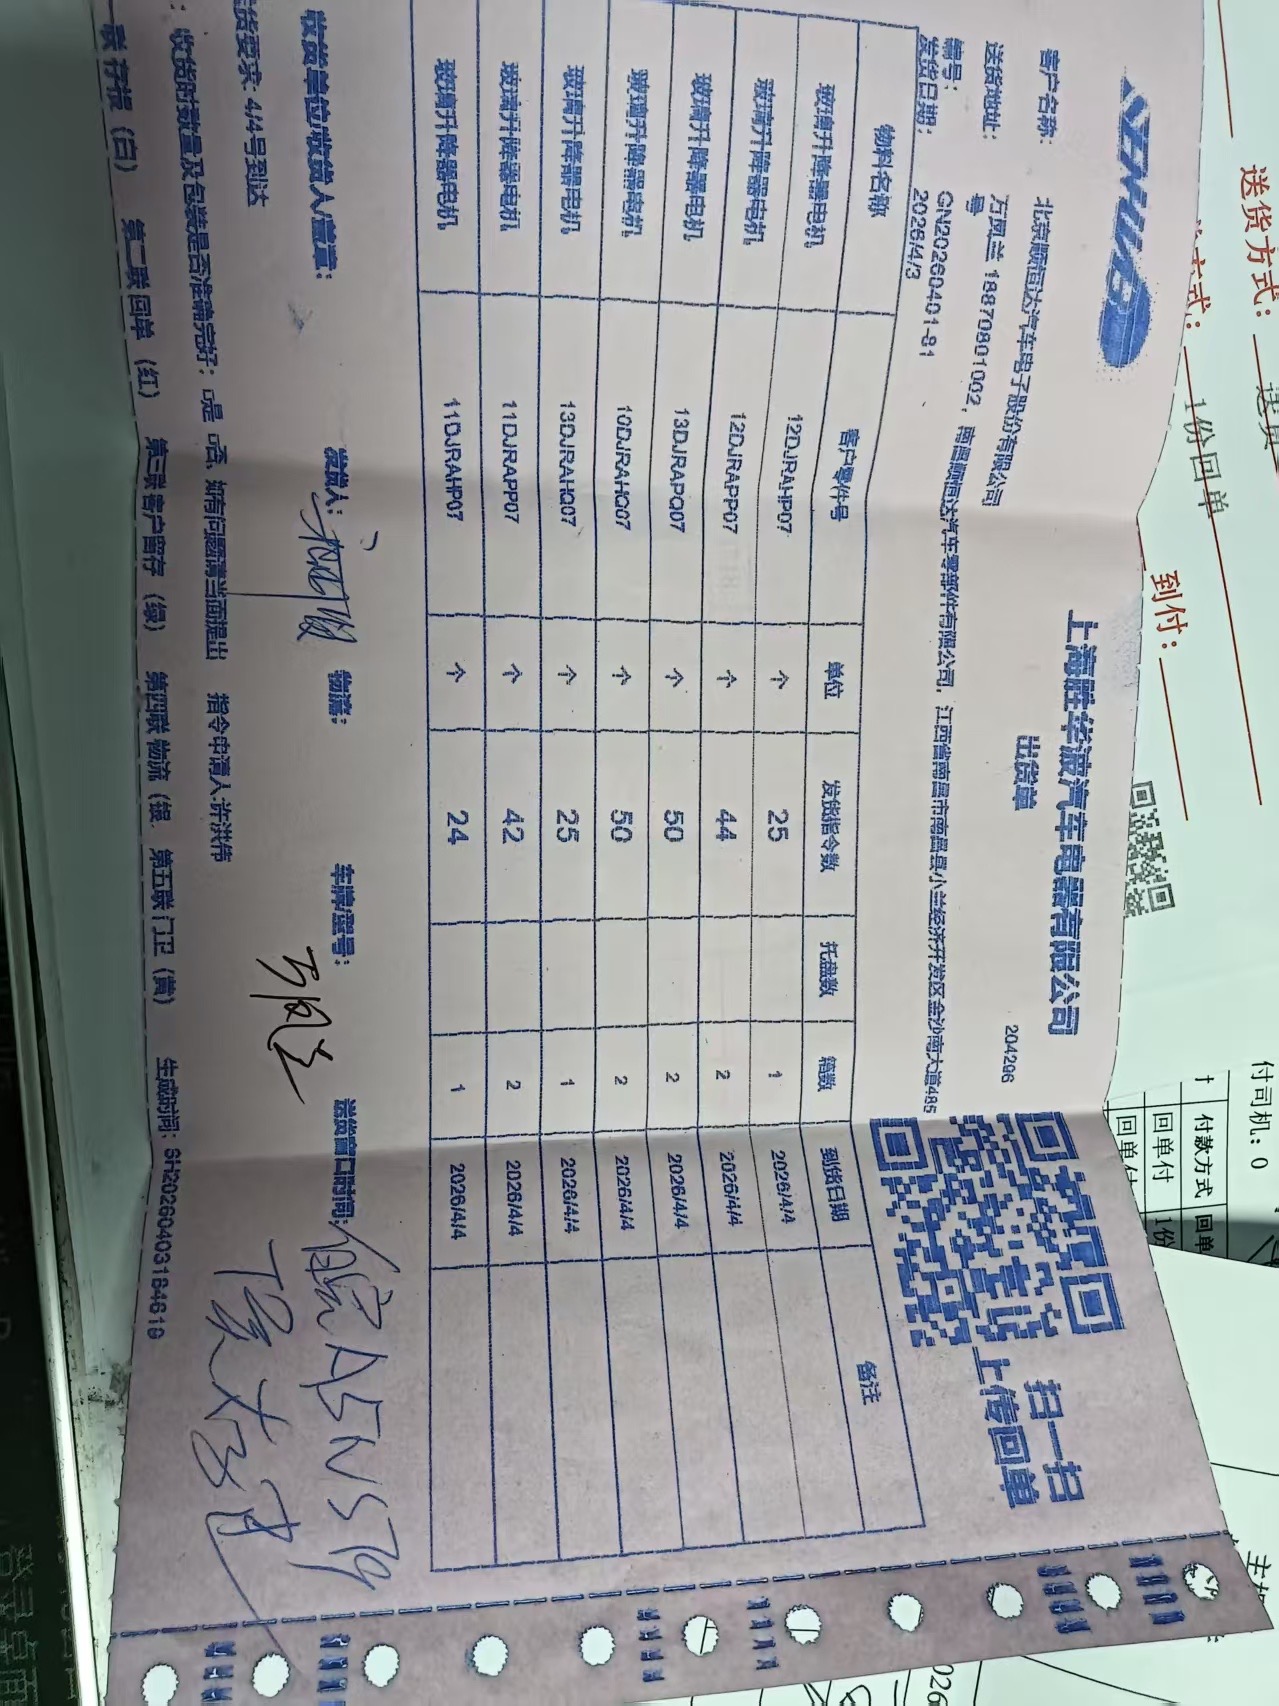 SHWB
上海胜华波汽车电器有限公司
出货单
204296
扫一扫
上传回单
客户名称: 北京顺恒达汽车电子股份有限公司
送货地址: 万凤兰 18870801002, 南昌顺恒达汽车零部件有限公司, 江西省南昌市南昌县小兰经济开发区金沙南大道485
号
编号: GN20260401-81
发货日期: 2026/4/3
物料名称 客户零件号 单位 发货指令数 托盘数 箱数 到货日期 备注
玻璃升降器电机 12DJRAHP07 个 25 1 2026/4/4
玻璃升降器电机 12DJRAPP07 个 44 2 2026/4/4
玻璃升降器电机 13DJRAPQ07 个 50 2 2026/4/4
玻璃升降器电机 10DJRAHQ07 个 50 2 2026/4/4
玻璃升降器电机 13DJRAHQ07 个 25 1 2026/4/4
玻璃升降器电机 11DJRAPP07 个 42 2 2026/4/4
玻璃升降器电机 11DJRAHP07 个 24 1 2026/4/4
收货单位/收货人/盖章: 发货人: 物流: 车牌/签号: 送货窗口时间:
万凤兰
货要求: 4/4号到达
: 收货时数量及包装是否准确完好: □是 □否, 如有问题请当面提出 指令申请人:许洪伟
一联 存根 (白) 第二联 回单 (红) 第三联 客户留存 (绿) 第四联 物流 (银 第五联 门卫 (黄) 生成时间: SH20260403184619
送货方式:
1份回单
到付:
付司机: 0
付款方式 回单
回单付 1份
回单付